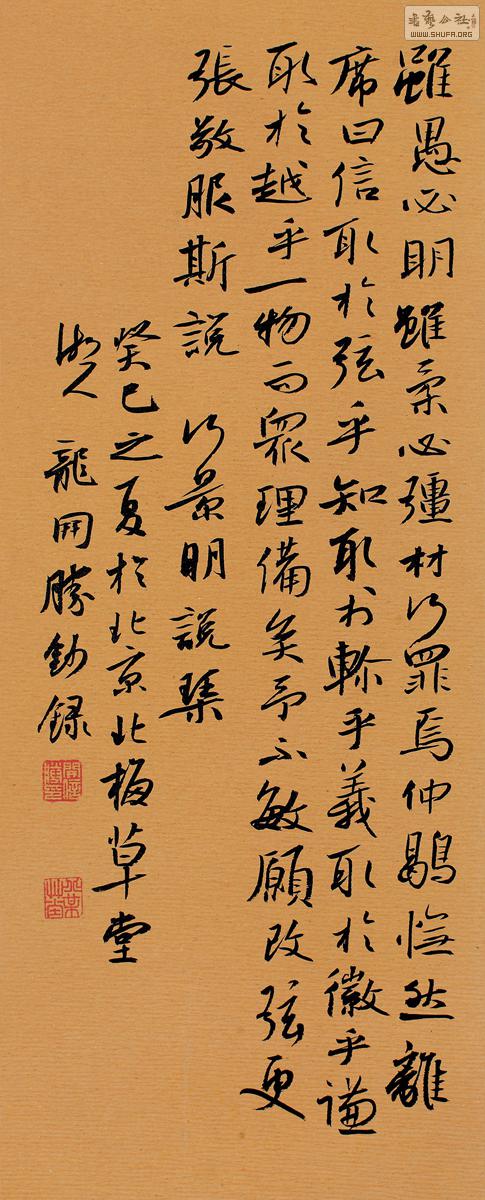 雖愚必明雖柔必彊材何罪焉仲鶡憮然離
席曰信取於弦乎知取於軫乎義取於徽乎謙
取於越乎一物而眾理備矣予不敏願改弦更
張敬服斯說 何景明說琴
癸巳之夏於北京北梅草堂
湘人 龍開勝鈔錄
書藝公社
WWW.SHUFA.ORG